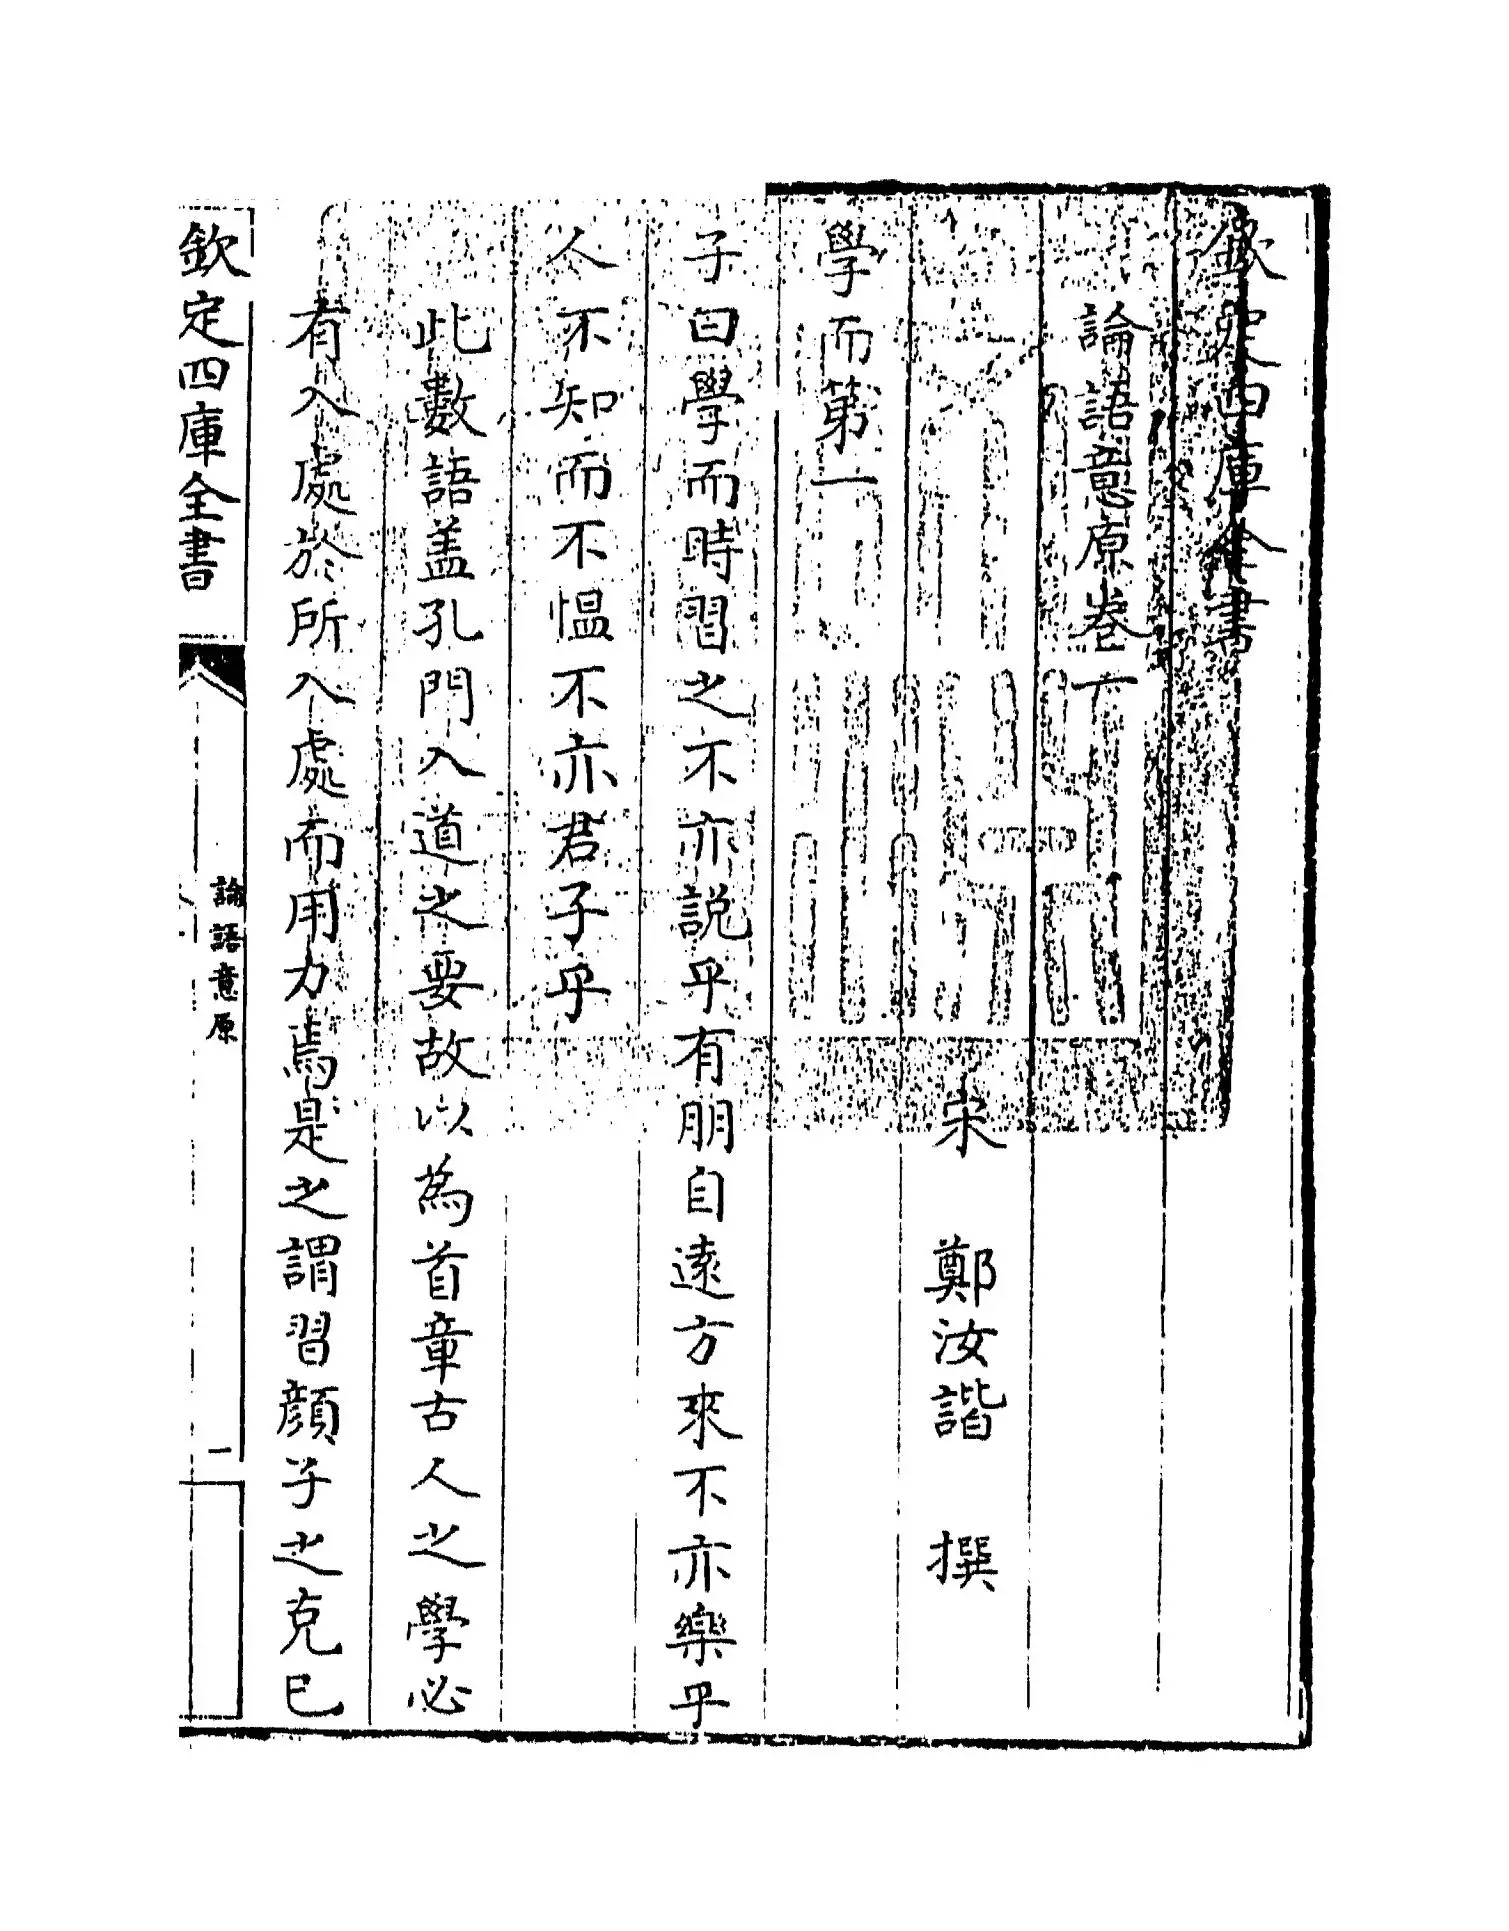 欽定四庫全書
論語意原卷一
宋　鄭汝諧　撰
學而第一
子曰學而時習之不亦説乎有朋自逺方來不亦樂乎
人不知而不愠不亦君子乎
此數語盖孔門入道之要故以為首章古人之學必
有入處於所入處而用力焉是之謂習顔子之克已
欽定四庫全書
論語意原
二